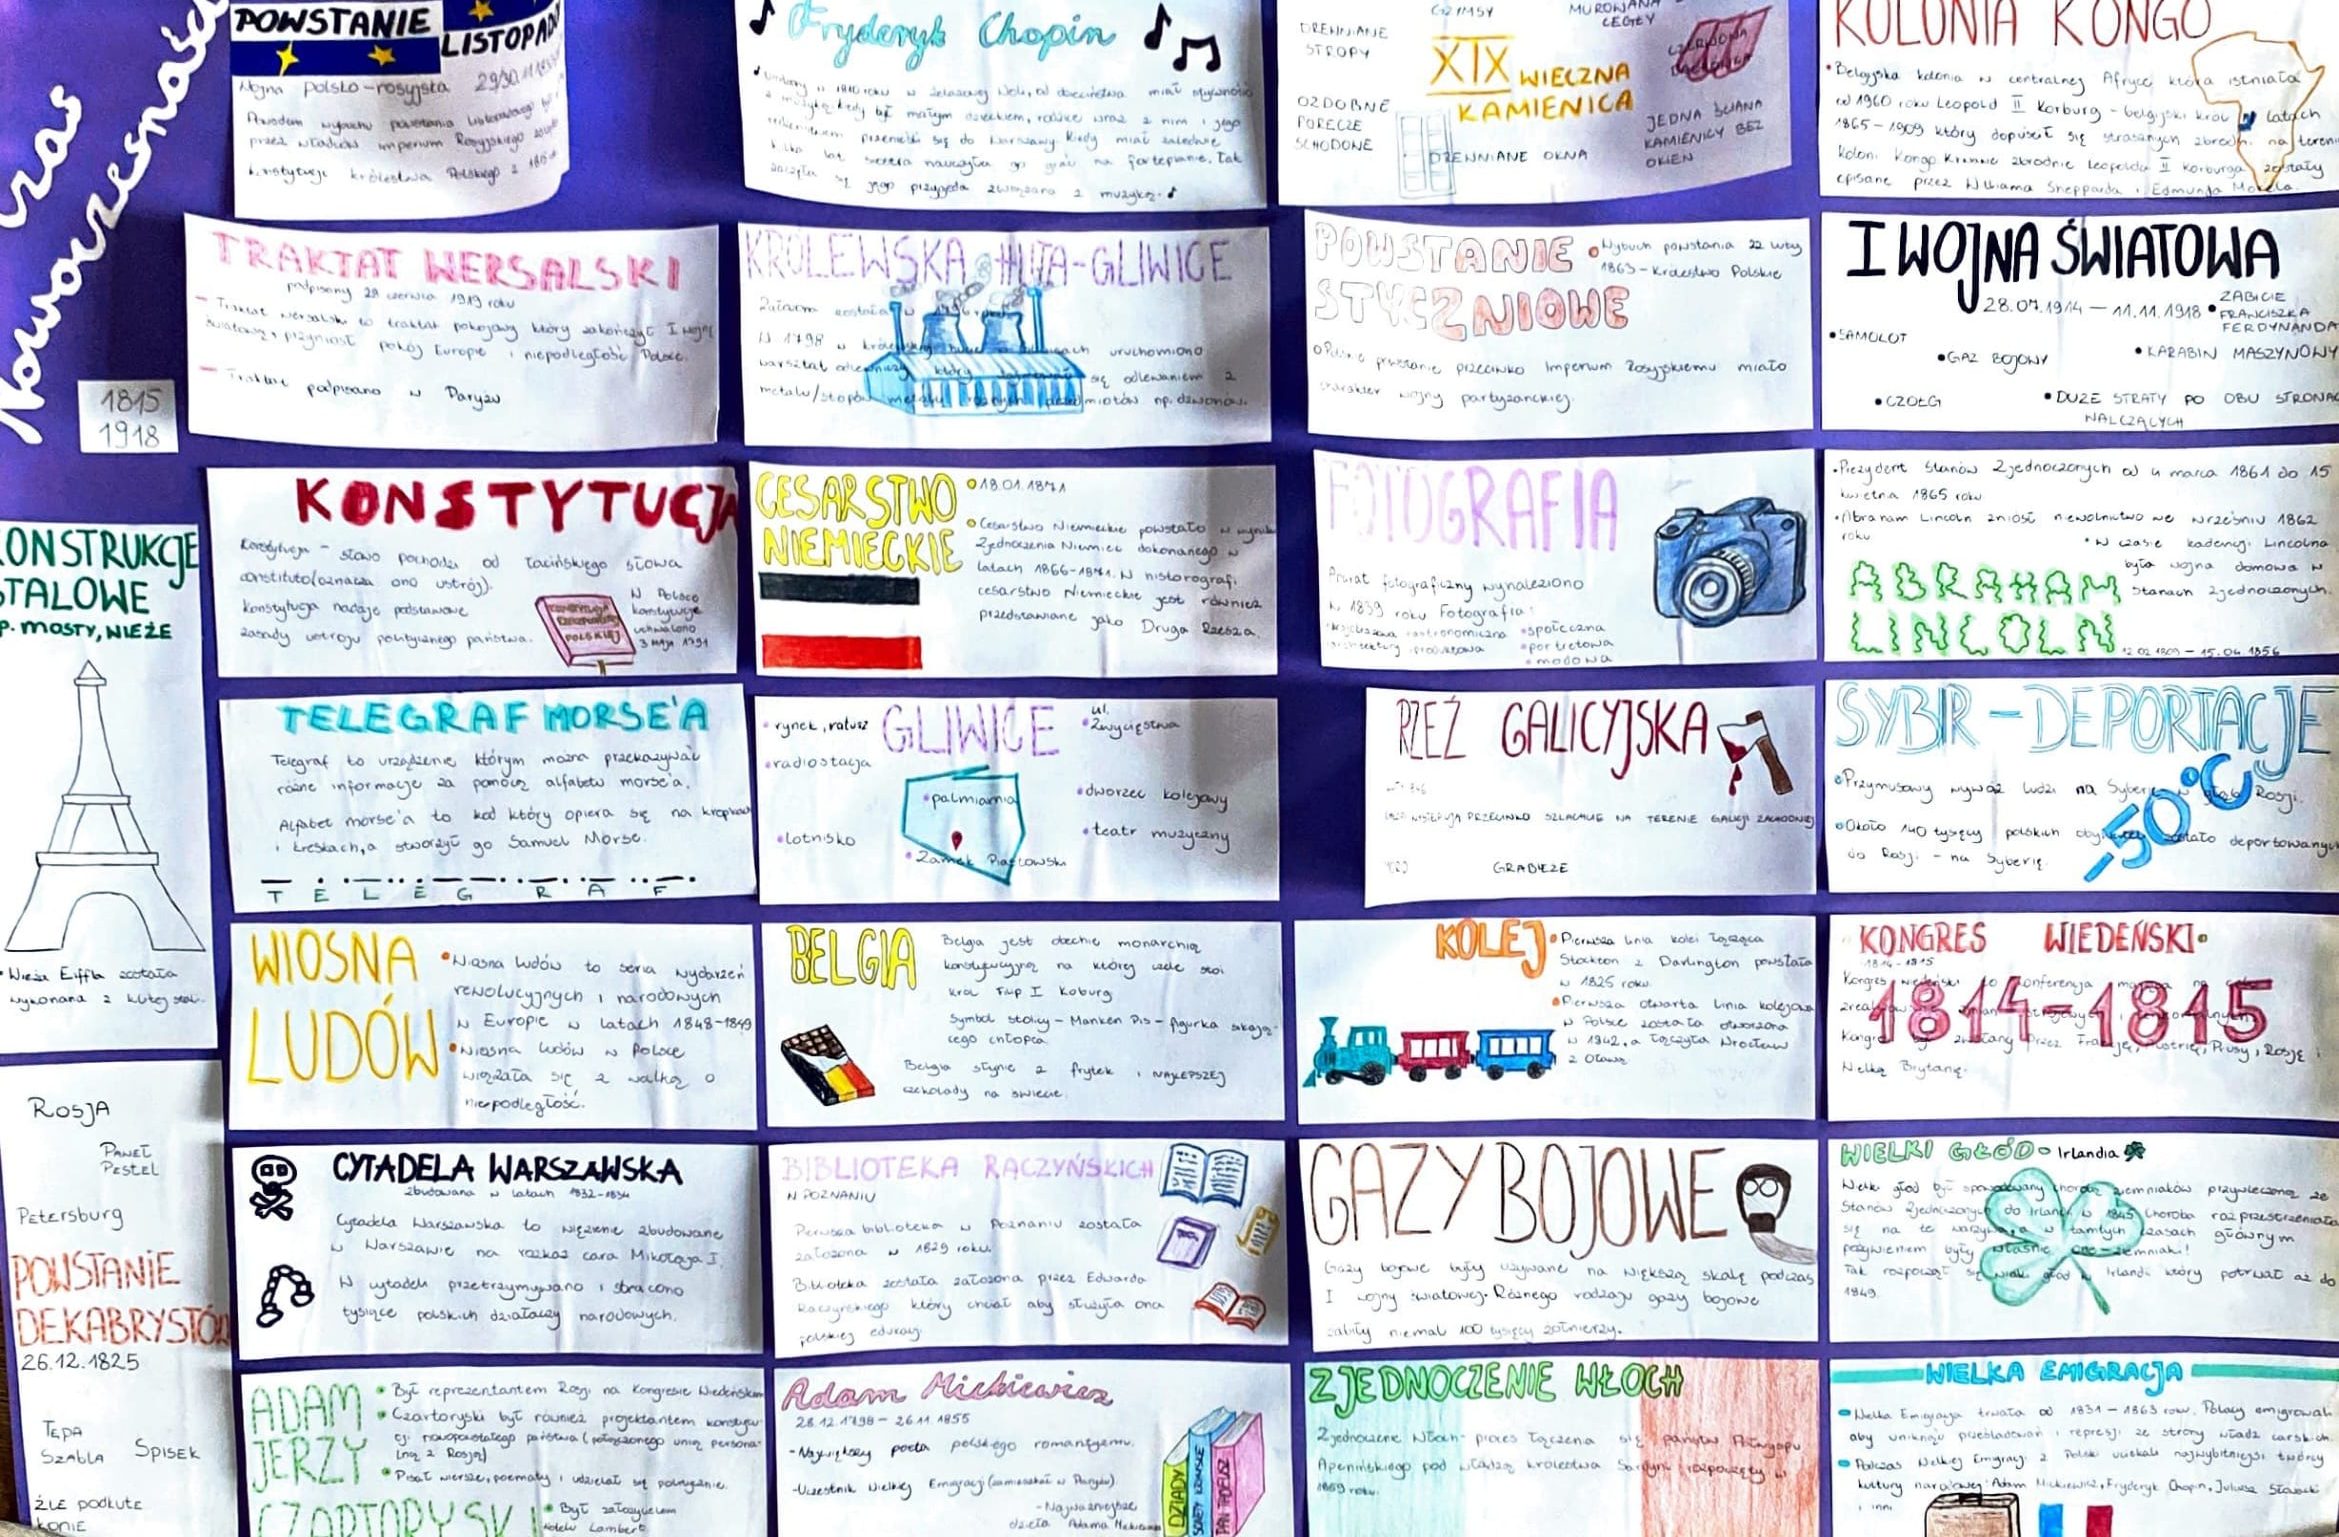 Czas
Nowoczesności
1815
1918
POWSTANIE
LISTOPAD
Wojna polsko-rosyjska
Powodem wybuchu powstania listopadowego
przez władców imperium Rosyjskiego
konstytucji królestwa Polskiego z
Fryderyk Chopin
w 1810 roku w żelazowej Woli, od dzieciństwa miał
z muzyką kiedy był małym dzieckiem, rodzice wraz z nim i jego
przenieśli się do Warszawy. Kiedy miał zaledwie
kilka lat siostra nauczyła go grać na fortepianie. Tak
zaczęła się jego przygoda związana z muzyką.
DREWNIANE
STROPY
GZYMSY
MUROWANA
CEGŁY
XIX WIECZNA
KAMIENICA
OZDOBNE
PORĘCZE
SCHODOWE
DREWNIANE OKNA
JEDNA ŚCIANA
KAMIENICY BEZ
OKIEN
KOLONIA KONGO
Belgijska kolonia w centralnej Afryce która istniała
od 1960 roku Leopold II Korburg - belgijski król w latach
1865-1909 który dopuścił się strasznych zbrodni na tereni
koloni Kongo. Krwawe zbrodnie Leopolda II Korburga zostały
opisane przez Williama Shepparda i Edmunda Morela.
TRAKTAT WERSALSKI
podpisany 28 czerwca 1919 roku
- Traktat wersalski to traktat pokojowy który zakończył I wojnę
światową, przyniósł pokój Europie i niepodległość Polsce.
- Traktat podpisano w Paryżu
KRÓLEWSKA HUTA-GLIWICE
została w 1796
W 1798 w uruchomiono
warsztat który się odlewaniem z
metalu/stopów metali różnych przedmiotów np. dzwonów.
POWSTANIE
STYCZNIOWE
Wybuch powstania 22 luty
1863 - Królestwo Polskie
powstanie przeciwko Imperium Rosyjskiemu miało
charakter wojny partyzanckiej.
I WOJNA ŚWIATOWA
28.07.1914 - 11.11.1918
• ZABICIE
FRANCISZKA
FERDYNANDA
• SAMOLOT
• GAZ BOJOWY
• KARABIN MASZYNOWY
• CZOŁG
• DUŻE STRATY PO OBU STRONAC
WALCZĄCYCH
KONSTYTUCJA
Konstytucja - słowo pochodzi od łacińskiego słowa
constituto(oznacza ono ustrój).
Konstytucja nadaje podstawowe
zasady ustroju politycznego państwa.
W Polsce
konstytucję
uchwalono
3 MAJA 1791
POLSKIEJ
CESARSTWO
NIEMIECKIE
18.01.1871
Cesarstwo Niemieckie powstało w wyniku
Zjednoczenia Niemiec dokonanego w
latach 1866-1871. W historiografi
cesarstwo Niemieckie jest również
przedstawiane jako Druga Rzesza.
FOTOGRAFIA
Aparat fotograficzny wynaleziono
w 1839 roku Fotografia:
• społeczna
• portretowa
• modowa
• Prezydent Stanów Zjednoczonych od 4 marca 1861 do 15
kwietna 1865 roku
• Abraham Lincoln zniósł niewolnictwo we wrześniu 1862
roku
• W czasie kadencji Lincolna
była wojna domowa w
Stanach Zjednoczonych.
ABRAHAM
LINCOLN
12.02.1809 - 15.04.1856
KONSTRUKCJE
STALOWE
P. MOSTY, WIEŻE
• Wieża Eiffla została
wykonana z kutej stali.
TELEGRAF MORSE'A
Telegraf to urządzenie którym można przekazywać
różne informacje za pomocą alfabetu morse'a.
Alfabet morse'a to kod który opiera się na kropkac
i kreskach, a stworzył go Samuel Morse.
T E L E G R A F
GLIWICE
• rynek, ratusz
• radiostacja
• lotnisko
• palmiarnia
• Zamek Piastowski
• ul.
Zwycięstwa
• dworzec kolejowy
• teatr muzyczny
RZEŹ GALICYJSKA
PRZECIWKO SZLACHCIE NA TERENIE GALICJI ZACHODNIEJ
GRABIEŻE
SYBIR - DEPORTACJE
• Przymusowy wywóz ludzi na Syberię w głąb Rosji.
• Około 140 tysięcy polskich obywateli zostało deportowanych
do Rosji - na Syberię.
-50°C
WIOSNA
LUDÓW
• Wiosna ludów to seria wydarzeń
rewolucyjnych i narodowych
w Europie w latach 1848-1849
• Wiosna ludów w Polsce
wiązała się z walką o
niepodległość.
BELGIA
Belgia jest obecnie monarchią
konstytucyjną na której czele stoi
król Filip I Koburg
Symbol stolicy - Manken Pis - figurka sikają-
cego chłopca
Belgia słynie z frytek i NAJLEPSZEJ
czekolady na świecie.
KOLEJ
• Pierwsza linia kolei łącząca
Stockton z Darlington powstała
w 1825 roku.
• Pierwsza otwarta linia kolejowa
w Polsce została otworzona
w 1942, a łączyła Wrocław
z Oławą.
KONGRES WIEDEŃSKI
1814-1815
Kongres wiedeński to Konferencja mająca na
1814-1815
Kongres był zwołany przez Francję, Austrię, Prusy, Rosję i
Wielką Brytanię.
ROSJA
PAWEŁ
PESTEL
PETERSBURG
POWSTANIE
DEKABRYSTÓW
26.12.1825
TĘPA
SZABLA
SPISEK
ŹLE PODKUTE
KONIE
CYTADELA WARSZAWSKA
zbudowana w latach 1832-1834
Cytadela Warszawska to więzienie zbudowane
w Warszawie na rozkaz cara Mikołaja I.
W cytadeli przetrzymywano i stracono
tysiące polskich działaczy narodowych.
BIBLIOTEKA RACZYŃSKICH
W POZNANIU
Pierwsza biblioteka w Poznaniu została
założona w 1829 roku.
Biblioteka została założona przez Edwarda
Raczyńskiego który chciał aby służyła ona
polskiej edukacji.
GAZY BOJOWE
Gazy bojowe były używane na większą skalę podczas
I wojny światowej. Różnego rodzaju gazy bojowe
zabiły niemal 100 tysięcy żołnierzy.
WIELKI GŁÓD - Irlandia
Wielki głód był spowodowany chorobą ziemniaków przywleczoną ze
Stanów Zjednoczonych do Irlandii w 1845 Choroba rozprzestrzeniała
się na te warzywa, a w tamtych czasach głównym
pożywieniem były właśnie one - ziemniaki!
Tak rozpoczął się wielki głód w Irlandi który potrwał aż do
1849.
ADAM
JERZY
CZARTORYSKI
• Był reprezentantem Rosji na Kongresie Wiedeńskim
• Czartoryski był również projektantem konstytu-
cji nowopowstałego państwa (połączonego unią persona-
lną z Rosją)
• Pisał wiersze, poematy i udzielał się politycznie.
• Był założycielem
Hotelu Lambert
Adam Mickiewicz
28.12.1798 - 26.11.1855
- Największy poeta polskiego romantyzmu.
- Uczestnik Wielkiej Emigracji (zamieszkał w Paryżu)
- Najważniejsze
dzieła Adama Mickiewicza
DZIADY
SONETY KRYMSKIE
PAN TADEUSZ
ZJEDNOCZENIE WŁOCH
Zjednoczenie Włoch - proces łączenia się państw Półwyspu
Apenińskiego pod władzą królestwa Sardynii rozpoczęty w
1859 roku.
WIELKA EMIGRACJA
Wielka Emigracja trwała od 1831 - 1863 roku. Polacy emigrowali
aby uniknąć prześladowań i represji ze strony władz carskich.
Podczas Wielkiej Emigracji z Polski uciekali najwybitniejsi twórcy
kultury narodowej: Adam Mickiewicz, Fryderyk Chopin, Juliusz Słowacki
i inni